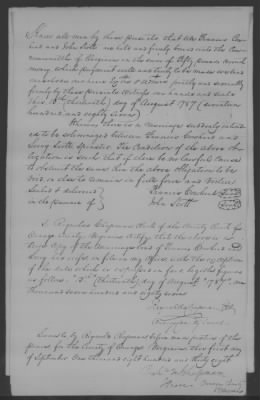 Know all men by these presents that we Francis Cow-
herd and John Scott are held and firmly bound unto the Com-
monwealth of Virginia in the sum of Fifty pounds current
money which payment well and truly to be made we bind
ourselves our heirs &c jointly and severally
firmly by these presents Witness our hands and seals
this 13th (thirteenth) day of August 1787 (seventeen
hundred and eighty seven)
Whereas there is a marriage suddenly intend
ed to be solemnized between Francis Cowherd and
Lucy Scott Spinster. The Condition of the above Ob-
ligation is such that if there be no Lawful Cause
to obstruct the same then the above Obligation to be
void, or else to remain in full force and virtue
Sealed & delivered
in the presence of
Francis Cowherd
John Scott
I, Reynolds Chapman Clerk of the County Court for
Orange county Virginia certify that the above is
copy of the marriage bond of Francis Cowherd and
Lucy his wife on file in my office, with the exception
of the date which is expressed in legible figures
as follows: "13th (thirteenth) day of August 1787" one
thousand seven hundred and eighty seven
Reynolds Chapman
Sworn to by Reynolds Chapman before me a justice of the
peace for the County of Orange Virginia this first day
of September One thousand eight hundred and thirty eight